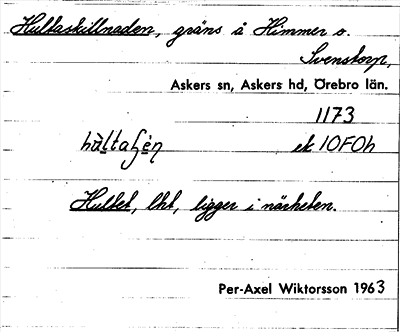 Hultaskillnaden, gräns å Himmer o.
Svenstorp,
Askers sn, Askers hd, Örebro län.
1173
ek 10F0h
Hultet, lht, ligger i närheten.
Per-Axel Wiktorsson 1963